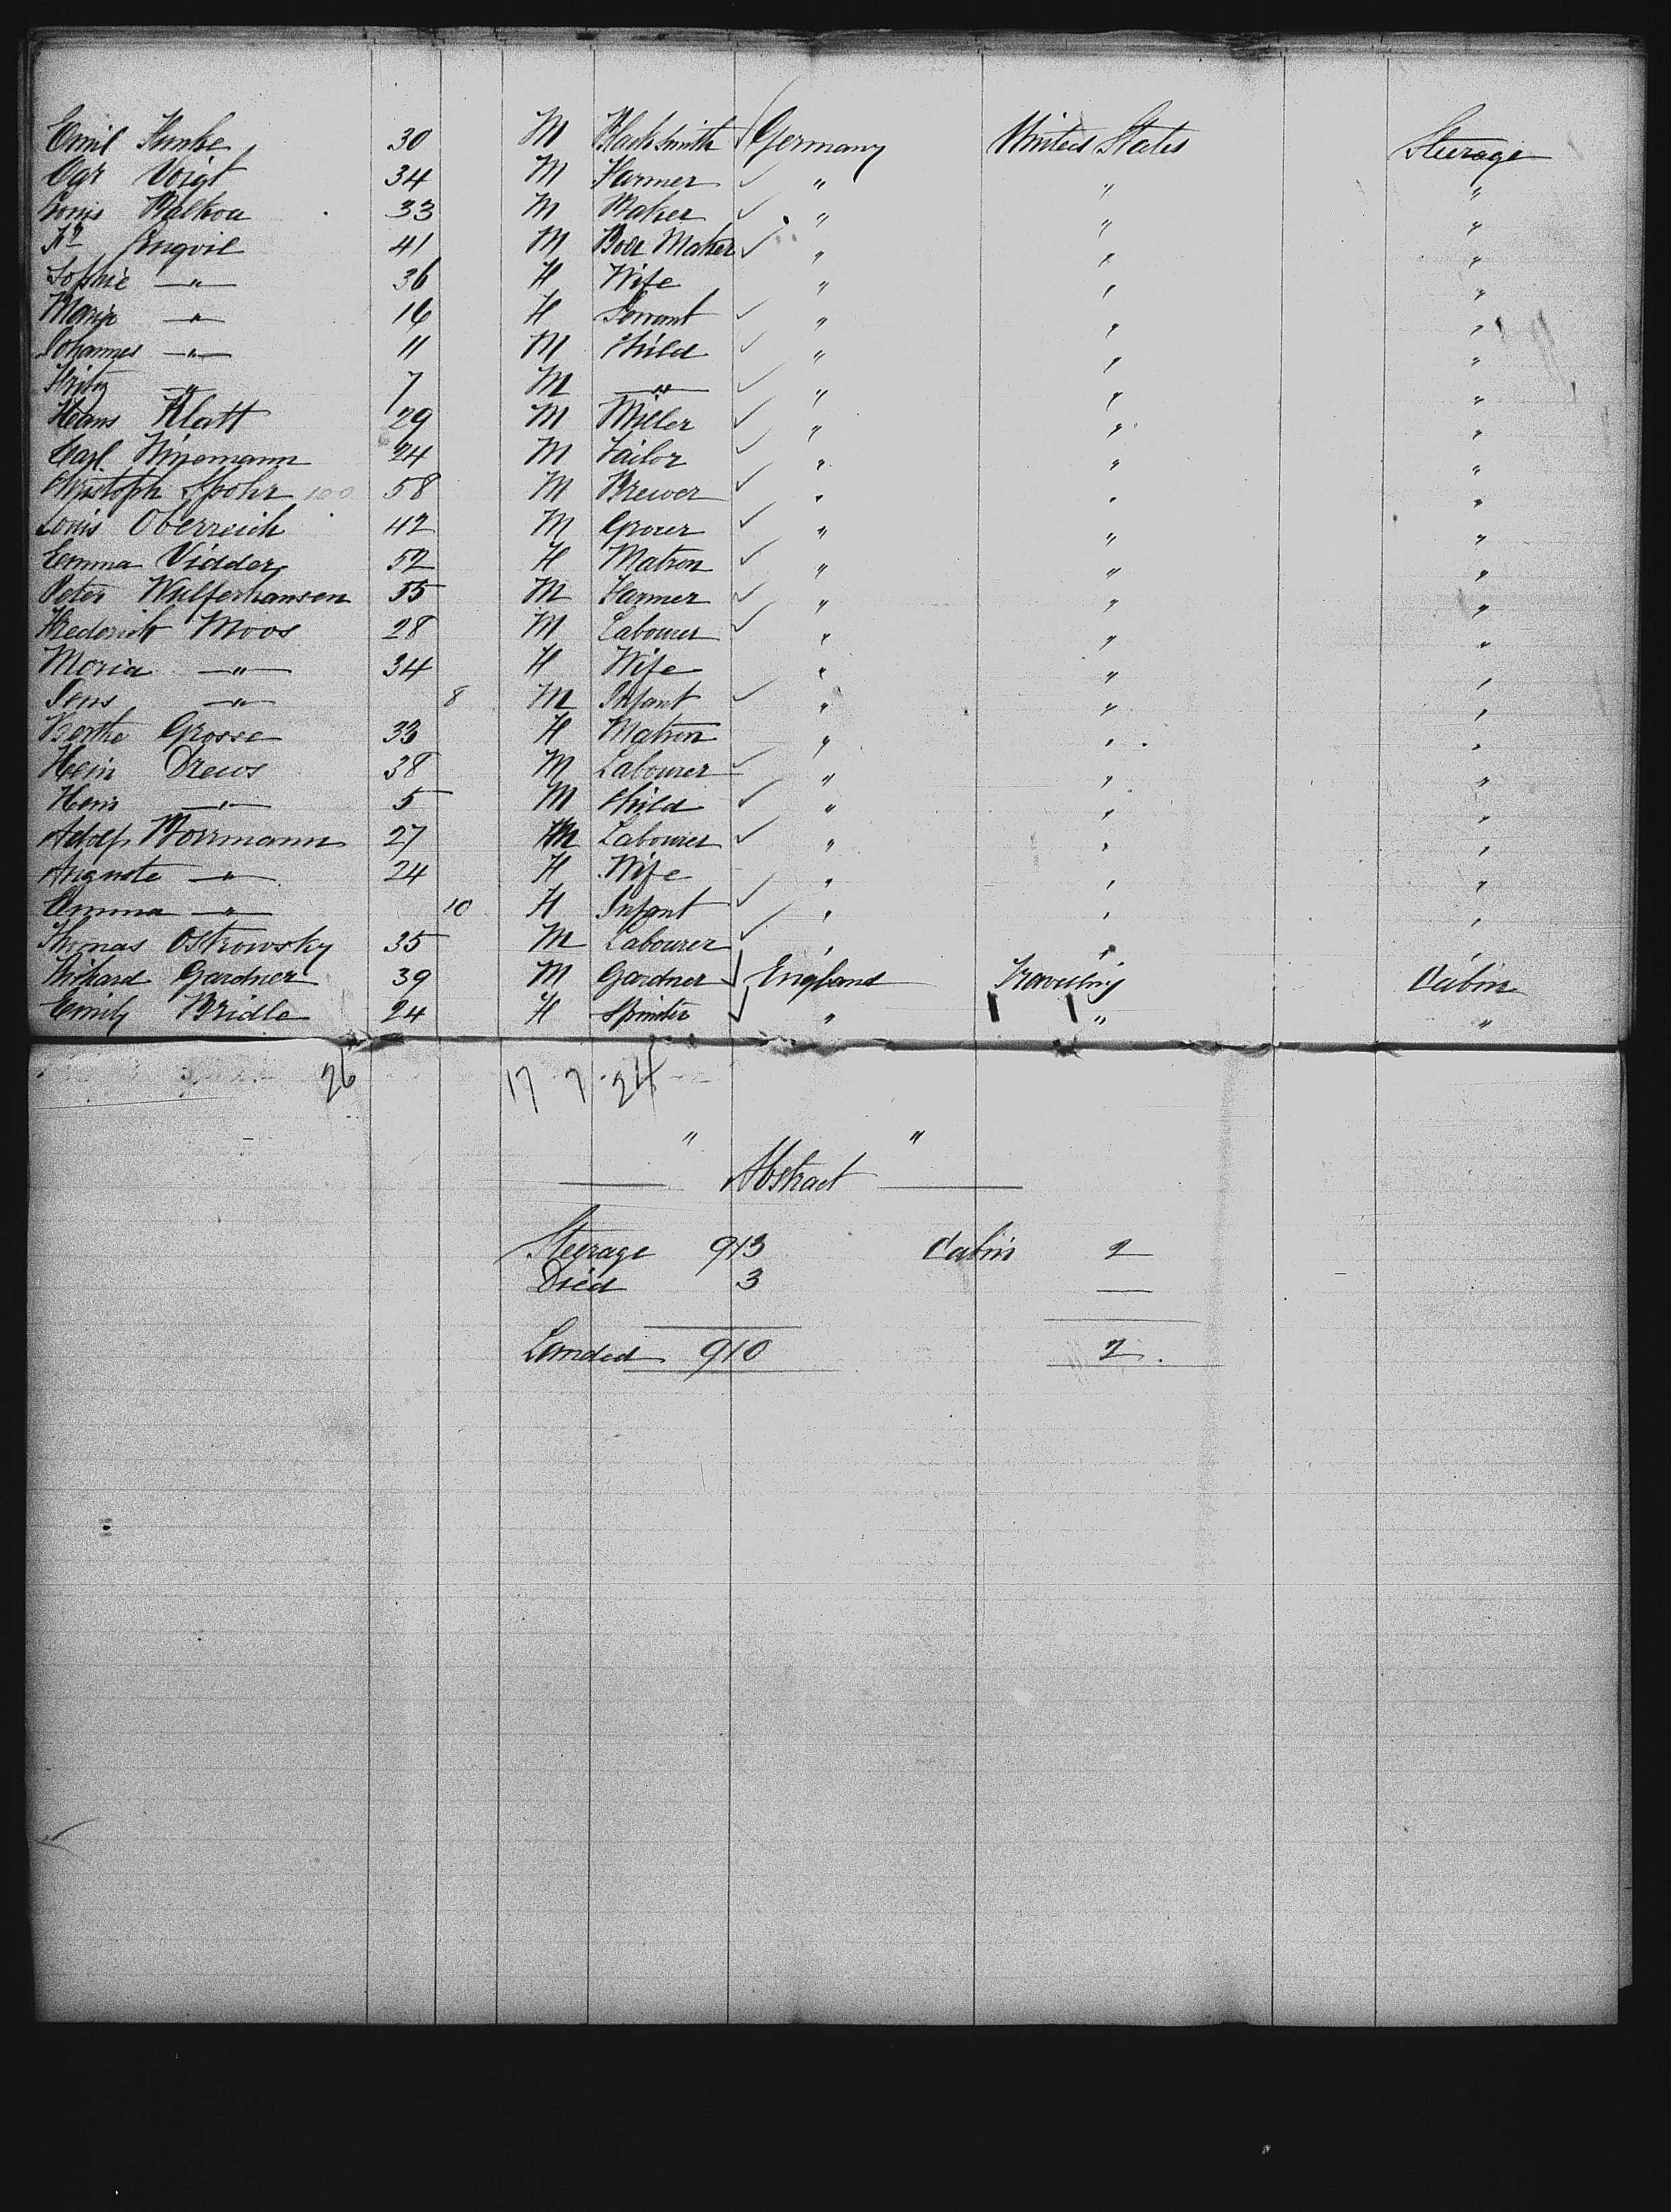 Emil Funke 30 M Blacksmith Germany United States Steerage
Voigt 34 M Farmer " " "
Louis 33 M Baker " " "
Fr 41 M Maker " " "
Sophie " 36 F Wife " " "
Maria " 16 F Servant " " "
Johannes " 11 M Child " " "
Fritz " 7 M " " " "
Hans Klatt 29 M Miller " " "
Carl 24 M Tailor " " "
Christoph Spohr 100 58 M Brewer " " "
Louis Oberreich 42 M Grocer " " "
Emma Vidder 52 F Matron " " "
Peter Wulferhansen 55 M Farmer " " "
Frederick Moos 28 M Labourer " " "
Maria " 34 F Wife " " "
Jens " 8 M Infant " " "
Berthe Grosse 33 F Matron " " "
Hein Drews 38 M Labourer " " "
Hein " 5 M Child " " "
Adolf Borrmann 27 M Labourer " " "
Auguste " 24 F Wife " " "
Emma " 10 F Infant " " "
Thomas Ostrowsky 35 M Labourer " " "
Richard Gardner 39 M Gardner England Travelling Cabin
Emily Bridle 24 F Spinster " " "
26 17 7 24
" "
Abstract
Steerage 913 Cabin 2
Died 3 —
Landed 910 2